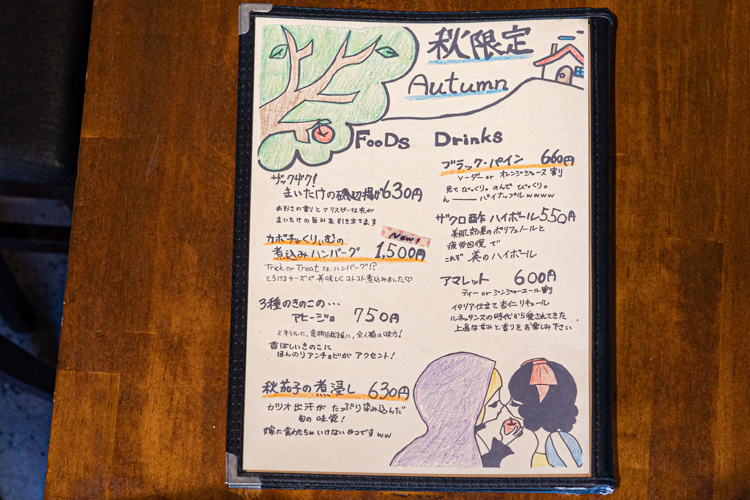 秋限定
Autumn
FooDs
ザックザク!
まいたけの磯辺揚げ 630円
あおさの香りとクリスピーな衣が
まいたけの旨みを引き立てます
New!
カボチャっくりぃむの
煮込みハンバーグ 1,500円
Trick or Treat なハンバーグ!?
とろけるチーズで美味しくコトコト煮込みました♡
3種のきのこの…
アヒージョ 750円
ミネラルに、食物繊維に、全人類の味方!
香ばしいきのこに
ほんのりアンチョビがアクセント!
秋茄子の煮浸し 630円
カツオ出汁がたっぷり染み込んだ
旬の味覚!
嫁に食わせちゃいけないやつですww
Drinks
ブラック・パイン 660円
ソーダー or オレンジジュース割り
見てびっくり。のんでびっくり。
ん――― パイナップルwwww
ザクロ酢ハイボール 550円
美肌効果のポリフェノールと
疲労回復で
これぞ美のハイボール
アマレット 600円
ティー or ジンジャーエール割
イタリア仕立て杏仁リキュール
ルネッサンスの時代から愛されてきた
上品な甘みと香りをお楽しみ下さい